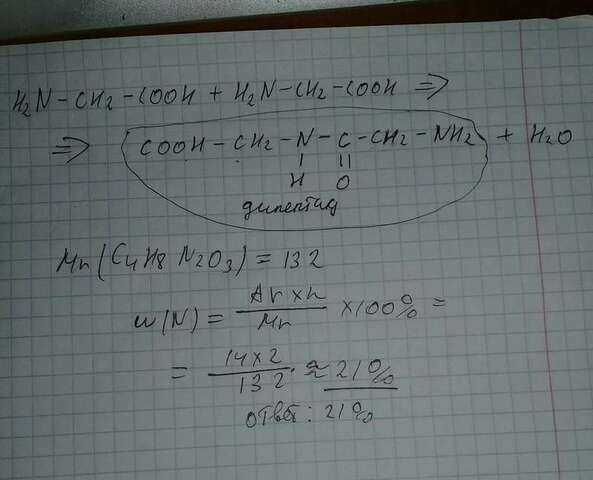 H₂N-CH₂-COOH + H₂N-CH₂-COOH ⇒
⇒ COOH-CH₂-N-C-CH₂-NH₂ + H₂O
H O
дипептид
Mr(C₄H₈N₂O₃) = 132
w(N) = Ar×n / Mr ×100% =
= 14×2 / 132 ≈ 21%
ответ: 21%